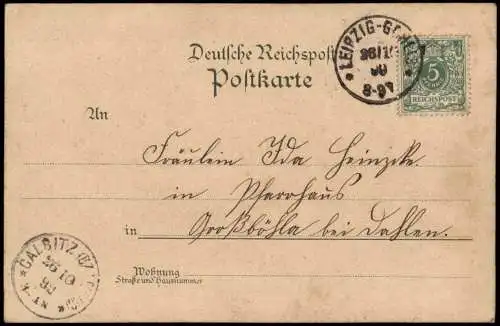 Deutsche Reichspost
Postkarte
LEIPZIG-GOHLIS
26/10
90
8-9V
5
REICHSPOST
An
Fräulein Ida Heinzcke
in Pfarrhaus
in Großböhla bei Dahlen.
Wohnung
Straße und Hausnummer
DALBITZ
26 10
90